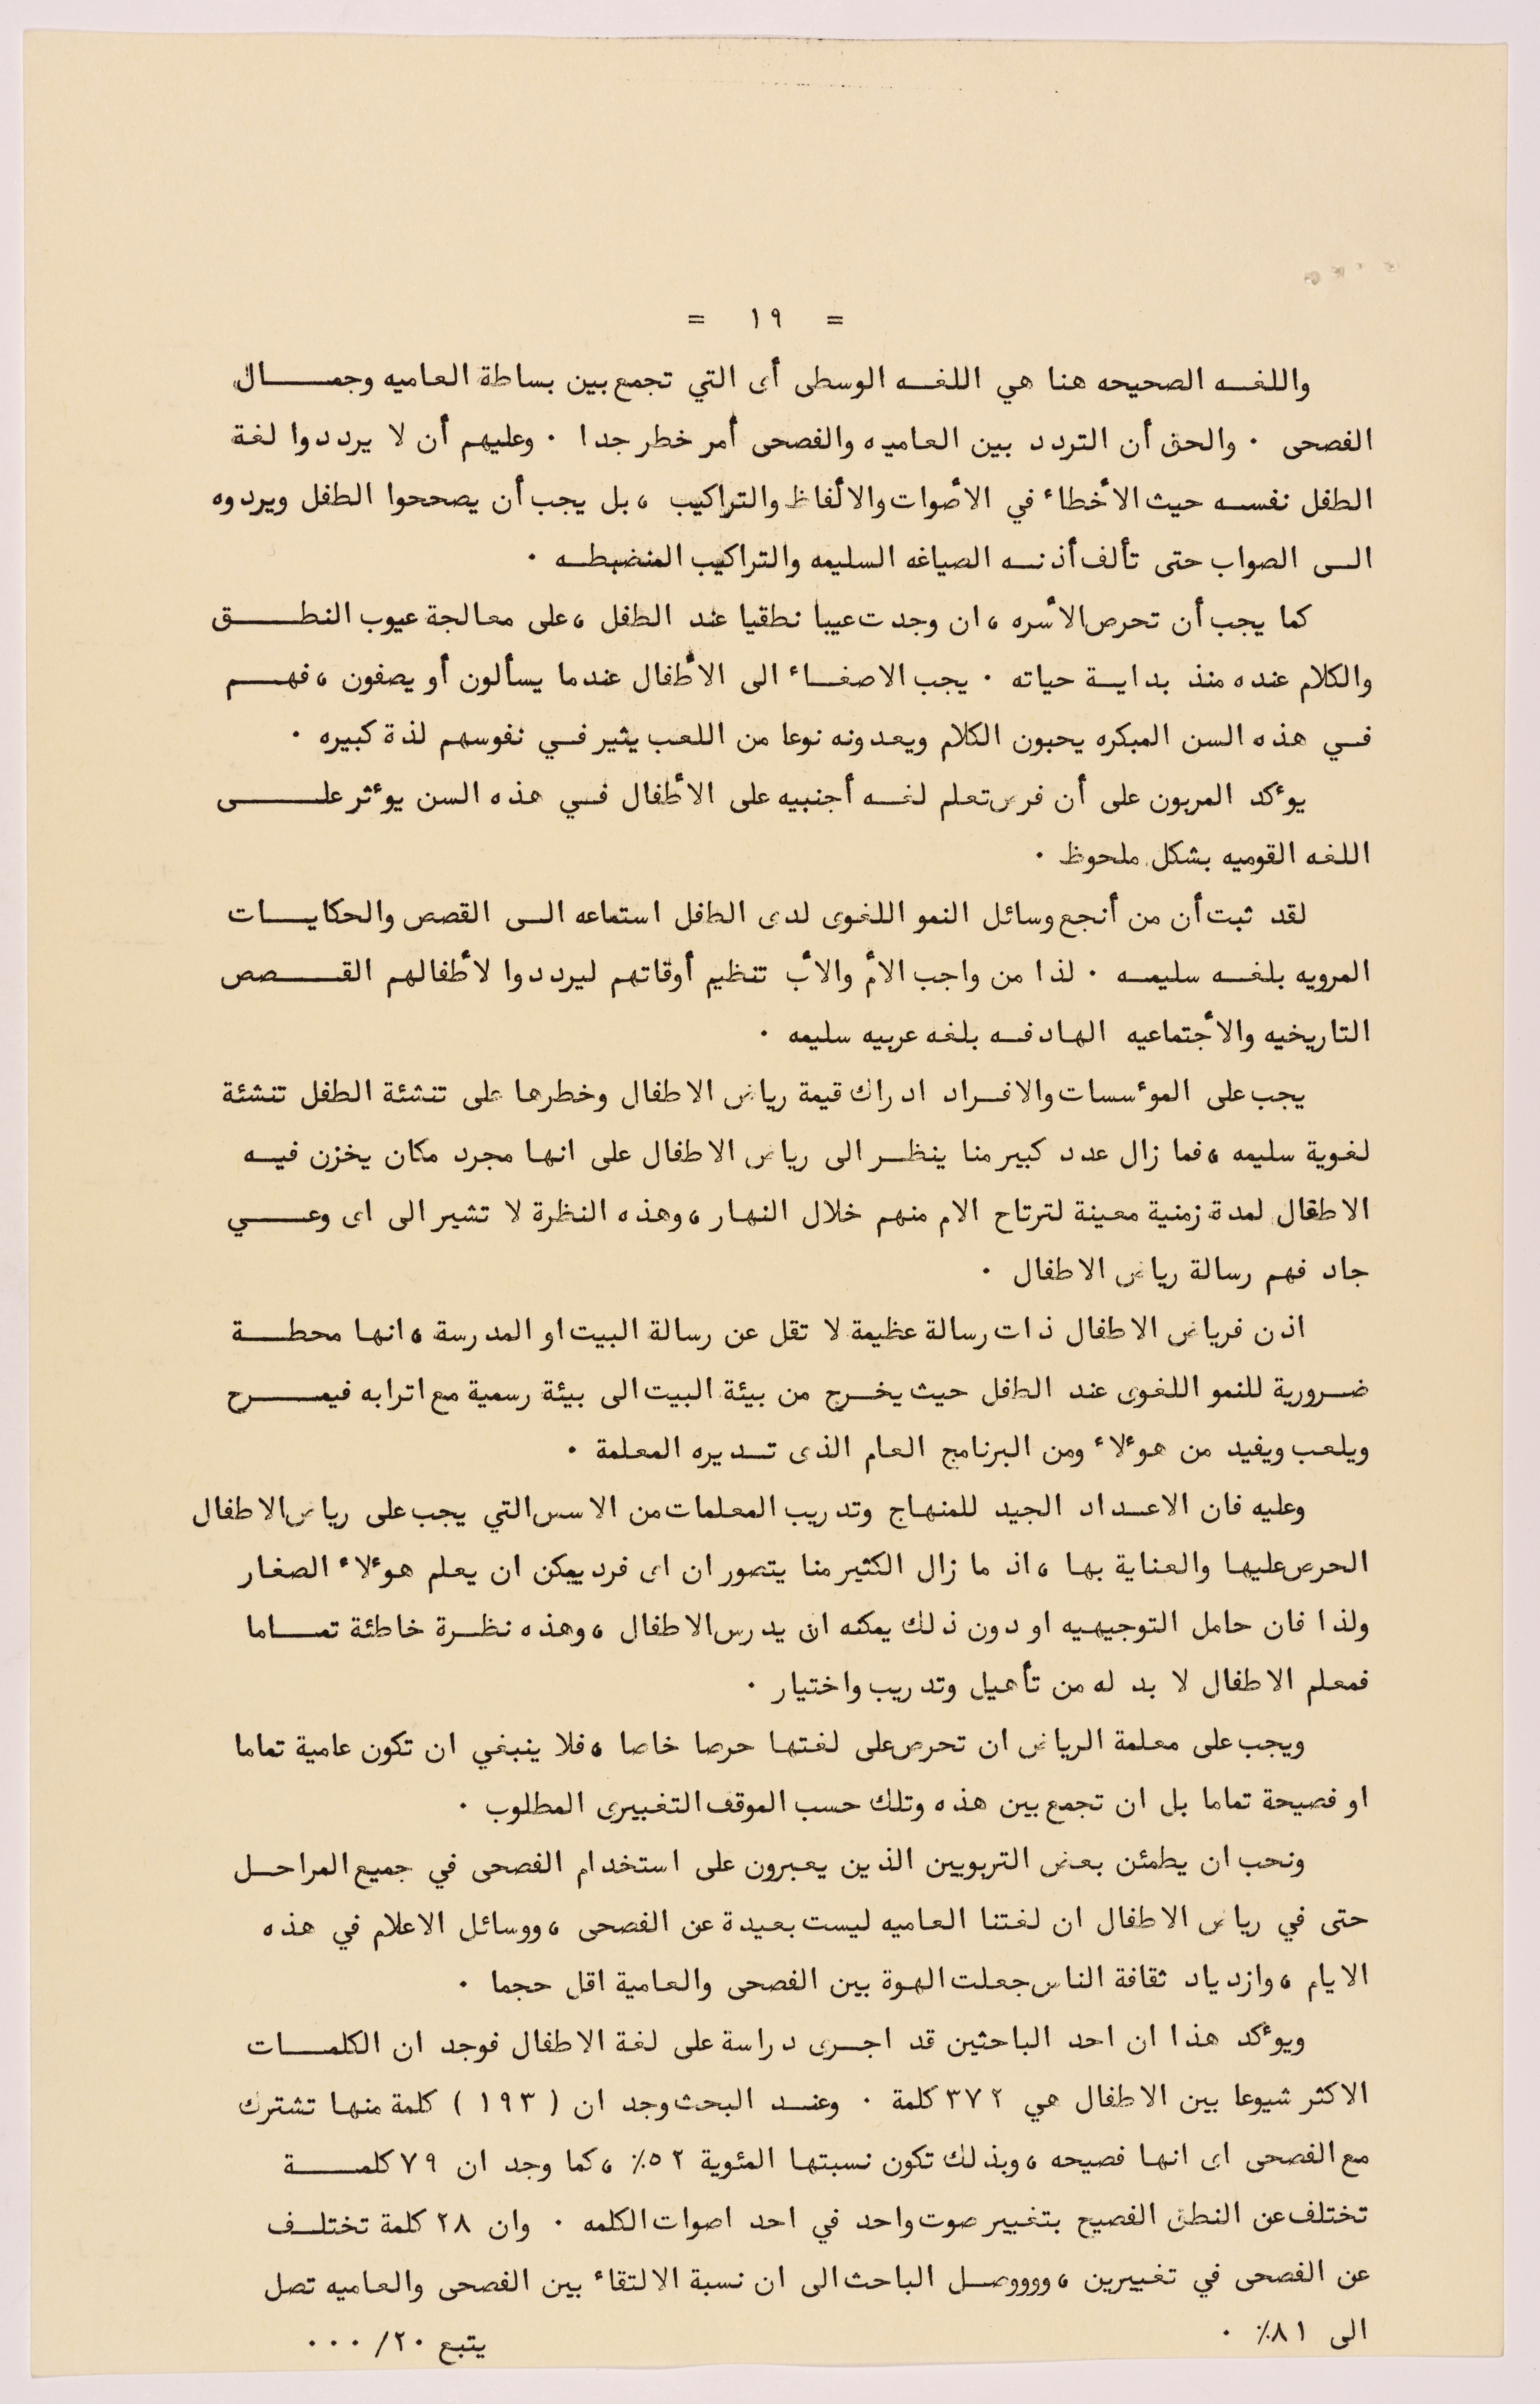 = ١٩ =
واللغه الصحيحه هنا هي اللغه الوسطى أى التي تجمع بين بساطة العاميه وجمال
الفصحى . والحق أن التردد بين العاميه والفصحى أمر خطر جدا . وعليهم أن لا يرددوا لغة
الطفل نفسه حيث الأخطاء في الأصوات والألفاظ والتراكيب ، بل يجب أن يصححوا الطفل ويردوه
الى الصواب حتى تألف أذنه الصياغه السليمه والتراكيب المنضبطه .
كما يجب أن تحرص الأسره ، ان وجدت عيبا نطقيا عند الطفل ، على معالجة عيوب النطق
والكلام عنده منذ بداية حياته . يجب الاصغاء الى الأطفال عندما يسألون أو يصفون ، فهم
في هذه السن المبكره يحبون الكلام ويعدونه نوعا من اللعب يثير في نفوسهم لذة كبيره .
يوءكد المربون على أن فرض تعلم لغه أجنبيه على الأطفال في هذه السن يوءثر على
اللغه القوميه بشكل ملحوظ .
لقد ثبت أن من أنجع وسائل النمو اللغوى لدى الطفل استماعه الى القصص والحكايات
المرويه بلغه سليمه . لذا من واجب الأم والأب تنظيم أوقاتهم ليرددوا لأطفالهم القصص
التاريخيه والأجتماعيه الهادفه بلغه عربيه سليمه .
يجب على الموءسسات والافراد ادراك قيمة رياض الاطفال وخطرها على تنشئة الطفل تنشئة
لغوية سليمه ، فما زال عدد كبير منا ينظر الى رياض الاطفال على انها مجرد مكان يخزن فيه
الاطفال لمدة زمنية معينة لترتاح الام منهم خلال النهار ، وهذه النظرة لا تشير الى اى وعي
جاد فهم رسالة رياض الاطفال .
اذن فرياض الاطفال ذات رسالة عظيمة لا تقل عن رسالة البيت او المدرسة ، انها محطة
ضرورية للنمو اللغوى عند الطفل حيث يخرج من بيئة البيت الى بيئة رسمية مع اترابه فيمرح
ويلعب ويفيد من هوءلاء ومن البرنامج العام الذى تديره المعلمة .
وعليه فان الاعداد الجيد للمنهاج وتدريب المعلمات من الاسس التي يجب على رياض الاطفال
الحرص عليها والعناية بها ، اذ ما زال الكثير منا يتصور ان اى فرد يمكن ان يعلم هوءلاء الصغار
ولذا فان حامل التوجيهيه او دون ذلك يمكنه ان يدرس الاطفال ، وهذه نظرة خاطئة تماما
فمعلم الاطفال لا بد له من تأهيل وتدريب واختيار .
ويجب على معلمة الرياض ان تحرص على لغتها حرصا خاصا ، فلا ينبغي ان تكون عامية تماما
او فصيحة تماما بل ان تجمع بين هذه وتلك حسب الموقف التغبيرى المطلوب .
ونحب ان يطمئن بعض التربويين الذين يعبرون على استخدام الفصحى في جميع المراحل
حتى في رياض الاطفال ان لغتنا العاميه ليست بعيدة عن الفصحى ، ووسائل الاعلام في هذه
الايام ، وازدياد ثقافة الناس جعلت الهوة بين الفصحى والعامية اقل حجما .
ويوءكد هذا ان احد الباحثين قد اجرى دراسة على لغة الاطفال فوجد ان الكلمات
الاكثر شيوعا بين الاطفال هي ٣٧٢ كلمة . وعند البحث وجد ان ( ١٩٣ ) كلمة منها تشترك
مع الفصحى اى انها فصيحه ، وبذلك تكون نسبتها المئوية ٥٢٪ ، كما وجد ان ٧٩ كلمة
تختلف عن النطق الفصيح بتغيير صوت واحد في احد اصوات الكلمه . وان ٢٨ كلمة تختلف
عن الفصحى في تغييرين ، وووووصل الباحث الى ان نسبة الالتقاء بين الفصحى والعاميه تصل
الى ٨١٪ .
يتبع ٢٠/ ...